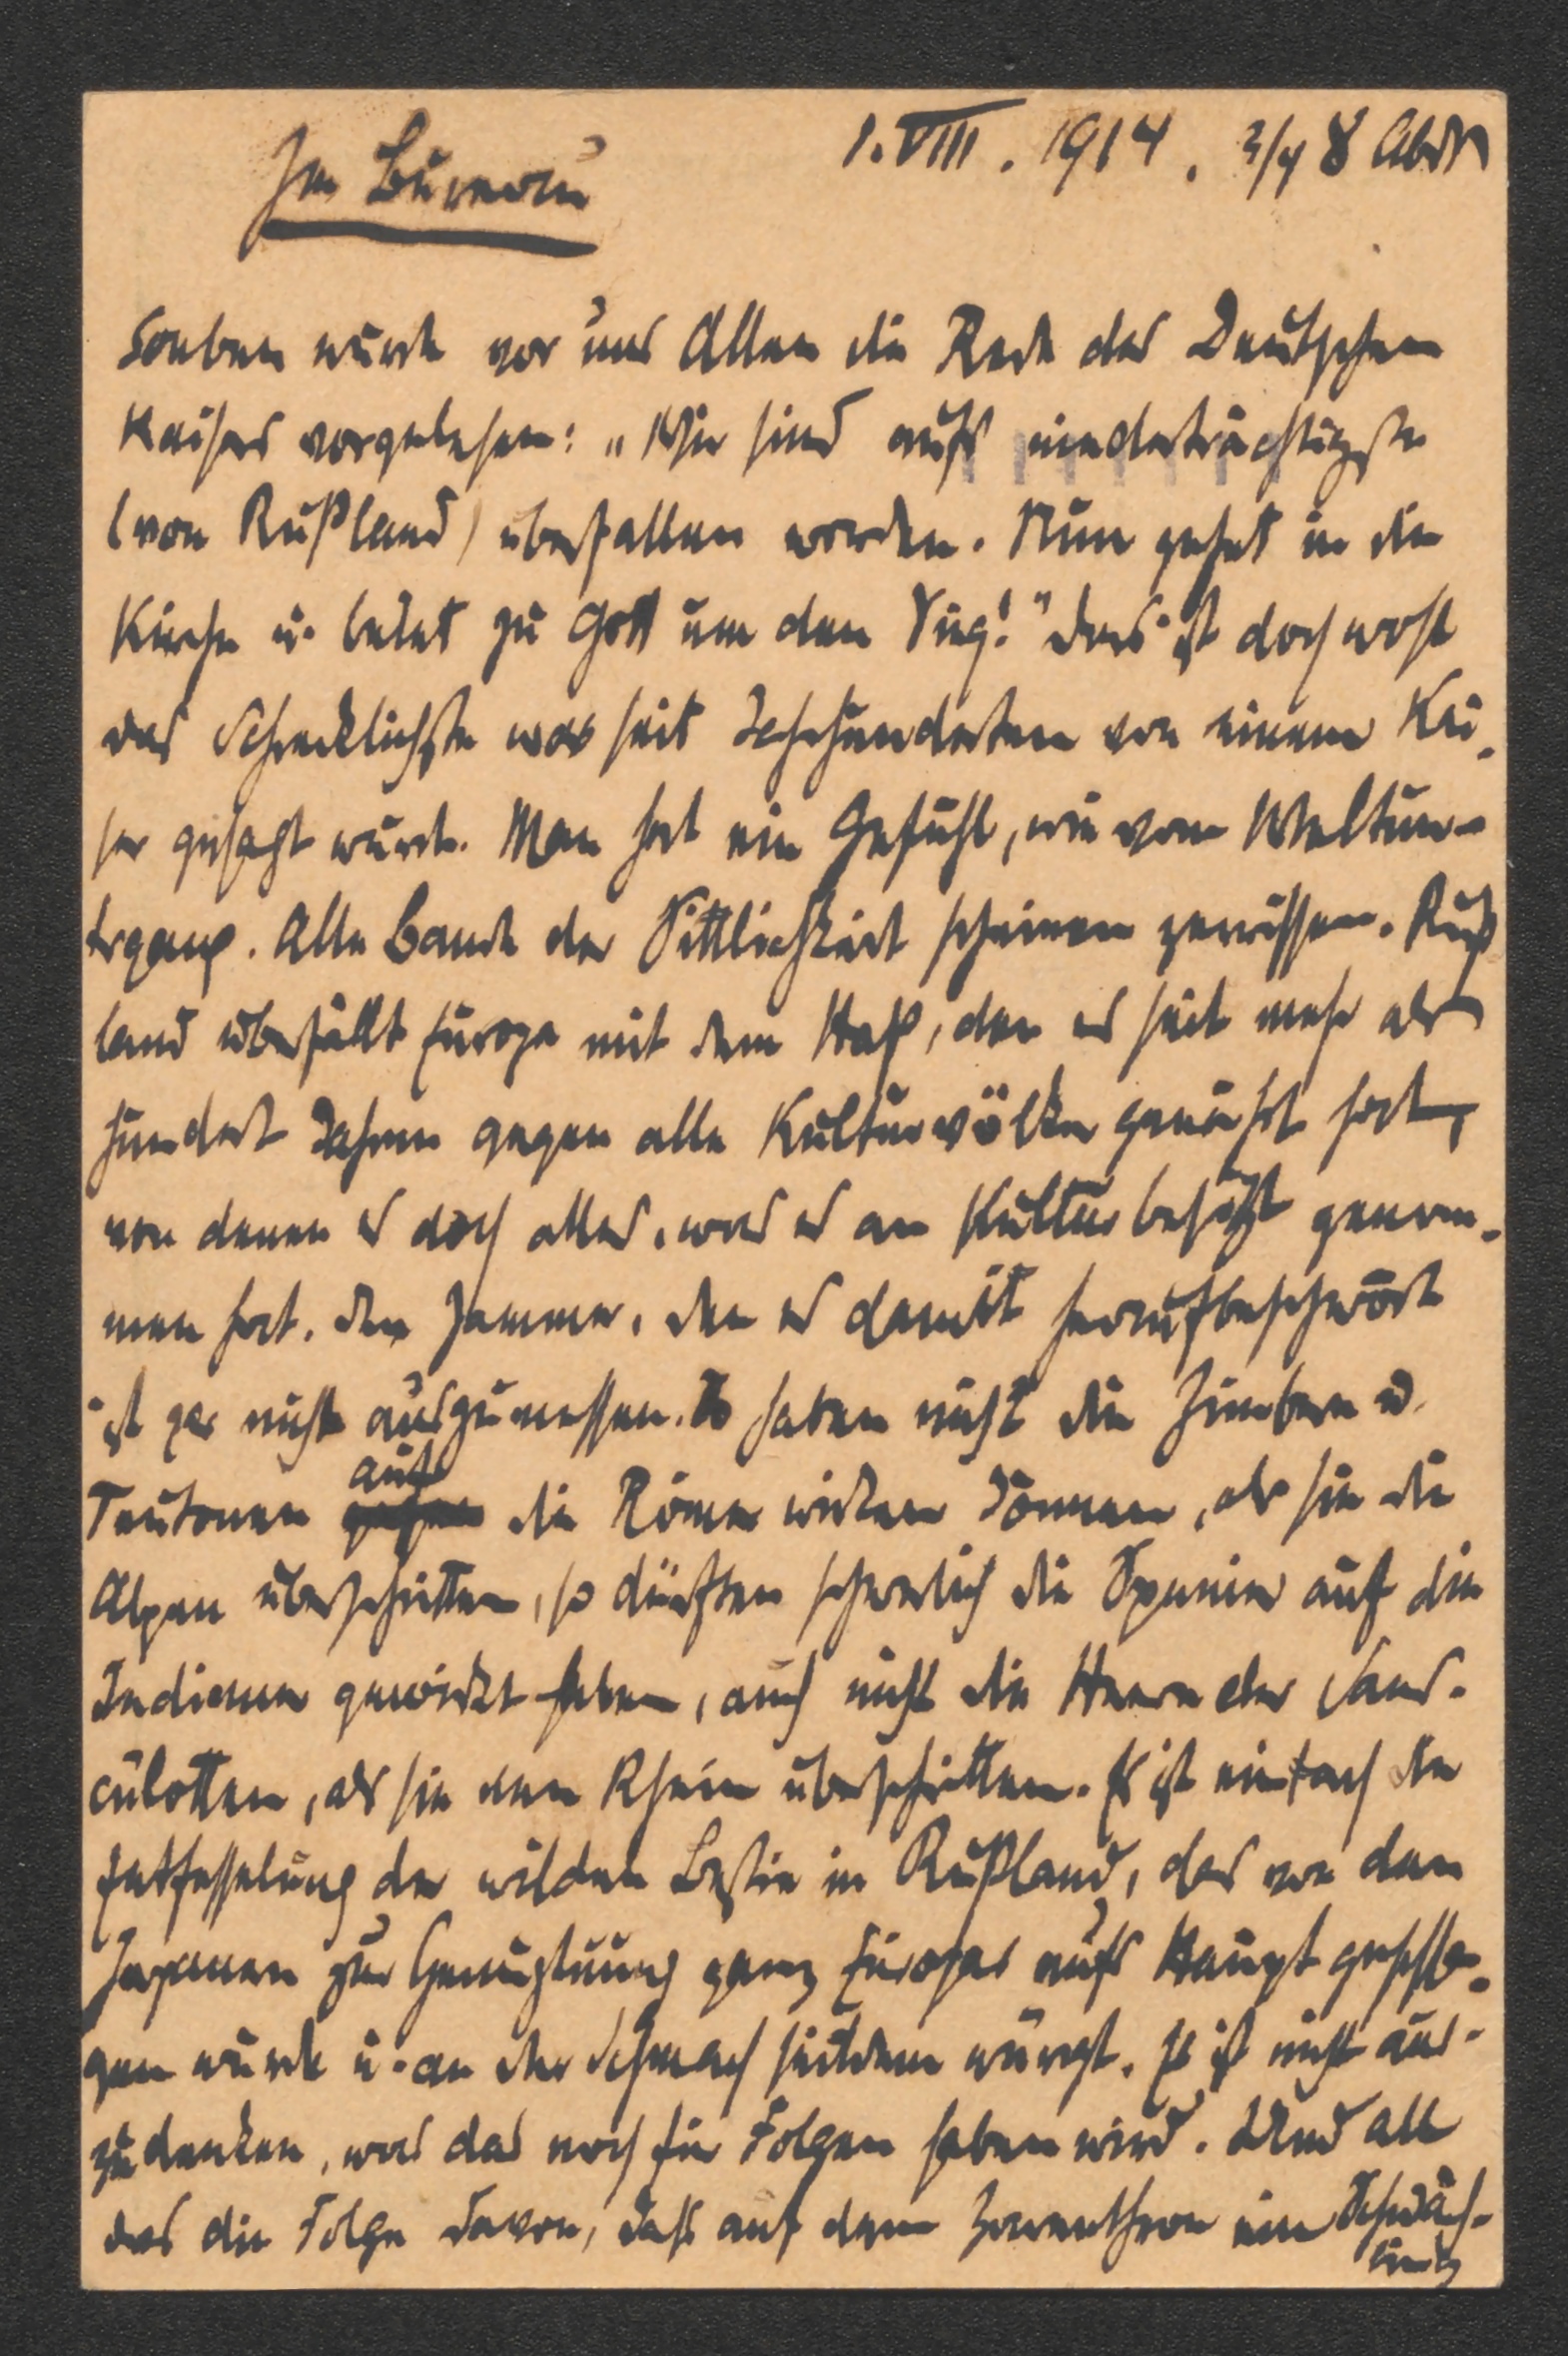 Im Bureau
1. VIII. 1914. 3/4 8 Abds
Soeben wurde vor uns Allen die Rede des Deutschen
Kaisers vorgelesen: „Wir sind aufs niederträchtigste
(von Rußland) überfallen worden. Nun gehet in die
Kirche u. betet zu Gott um den Sieg!" Das ist doch wohl
das Schrecklichste was seit Jahrhunderten von einem Kai-
ser gesagt wurde. Man hat ein Gefühl, wie vom Weltun-
tergang. Alle Bande der Sittlichkeit scheinen zerrissen. Ruß
land überfällt Europa mit dem Haß, den es seit mehr als
hundert Jahren gegen alle Kulturvölker genährt hat,
von denen es doch alles, was es an Kultur besitzt genom-
men hat. Den Jammer, den es damit heraufbeschwört
ist gar nicht auszumessen. So haben nicht die Zimbern u.
Teutonen auf die Römer wirken können, als sie die
Alpen überschritten, so dürften schwerlich die Spanier auf die
Indianer gewirkt haben, auch nicht die Heere der Sans-
culotten, als sie den Rhein überschritten. Es ist einfach die
Entfesselung der wilden Bestie in Rußland, das von den
Japanern zur Genugtuung ganz Europas aufs Haupt geschla-
gen wurde u. an der Schmach seitdem würgt. Es ist nicht aus-
zudenken, was das noch für Folgen haben wird. Und all
das die Folge davon, daß auf dem Zarenthron ein Schwäch-
ling